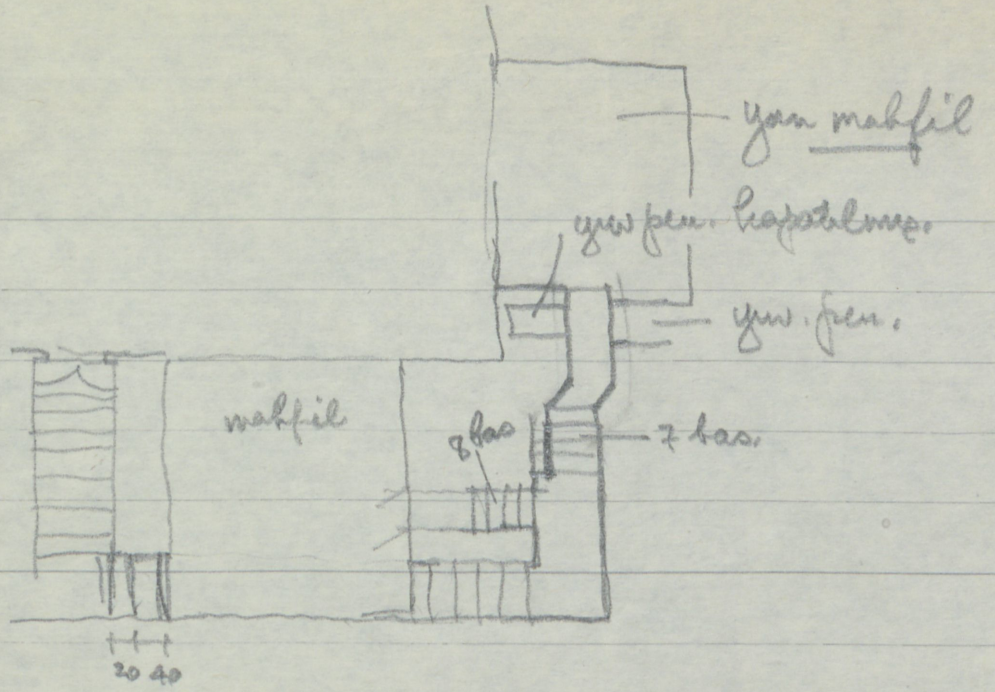 yan mahfil
yuv pen. kapatılmış.
yuv. pen.
mahfil
8 bas
7 bas.
20 40